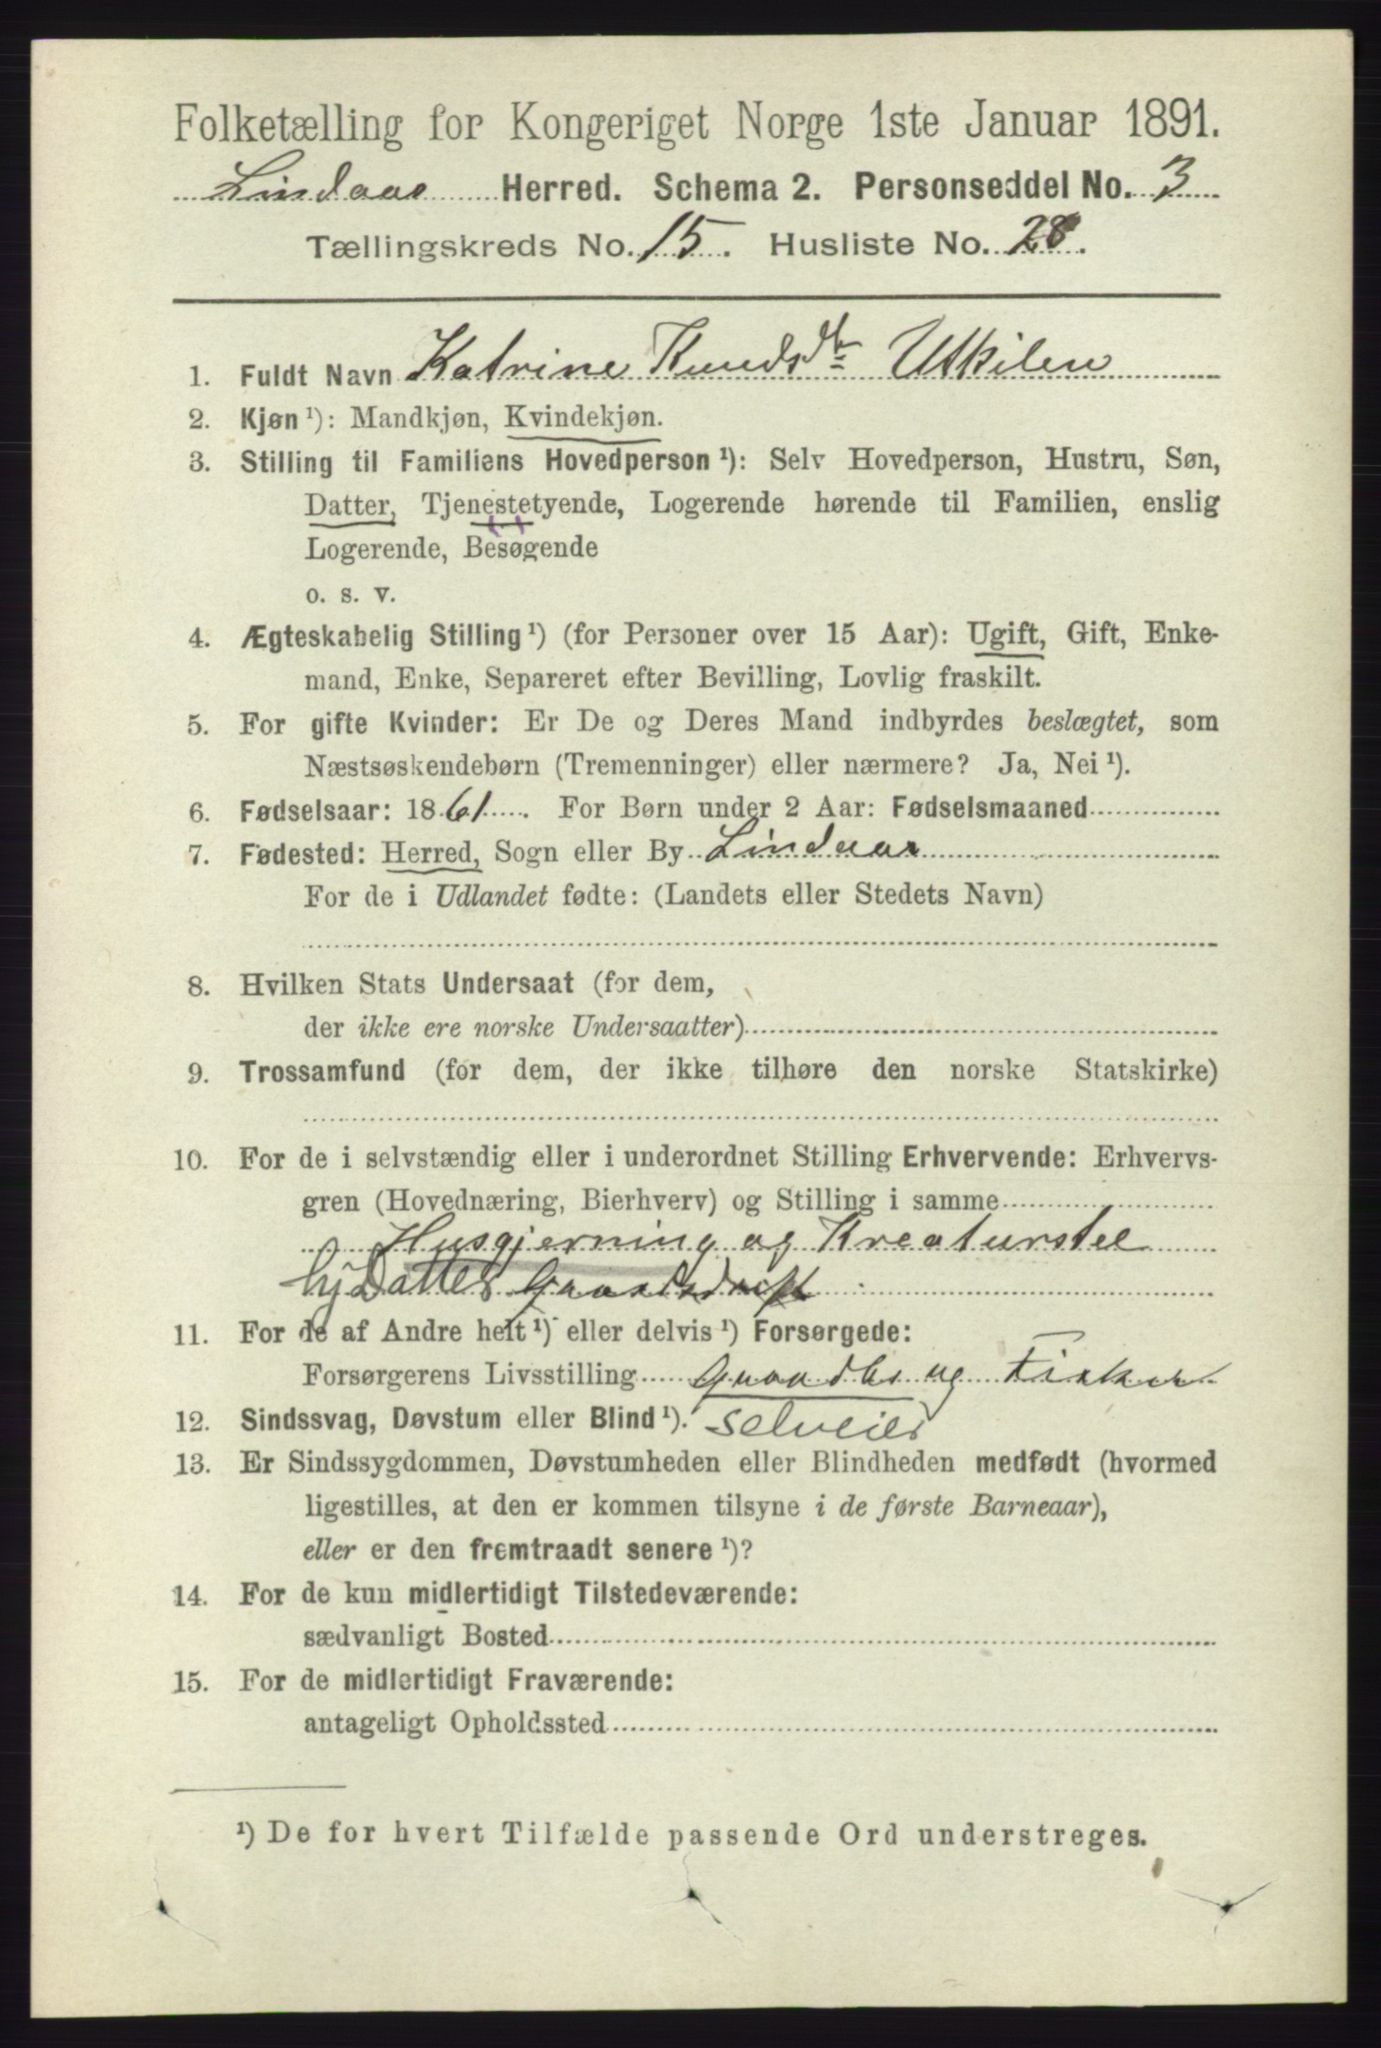 Folketælling for Kongeriget Norge 1ste Januar 1891.
Lindaas Herred. Schema 2. Personseddel No. 3
Tællingskreds No. 15. Husliste No. 28.
1. Fuldt Navn Katrine Knudsdtr Utkilen
2. Kjøn ¹): Mandkjøn, Kvindekjøn.
3. Stilling til Familiens Hovedperson ¹): Selv Hovedperson, Hustru, Søn,
Datter, Tjenestetyende, Logerende hørende til Familien, enslig
Logerende, Besøgende
o. s. v.
4. Ægteskabelig Stilling ¹) (for Personer over 15 Aar): Ugift, Gift, Enke-
mand, Enke, Separeret efter Bevilling, Lovlig fraskilt.
5. For gifte Kvinder: Er De og Deres Mand indbyrdes beslægtet, som
Næstsøskendebørn (Tremenninger) eller nærmere? Ja, Nei ¹).
6. Fødselsaar: 1861. For Børn under 2 Aar: Fødselsmaaned
7. Fødested: Herred, Sogn eller By Lindaas
For de i Udlandet fødte: (Landets eller Stedets Navn)
8. Hvilken Stats Undersaat (for dem,
der ikke ere norske Undersaatter)
9. Trossamfund (for dem, der ikke tilhøre den norske Statskirke)
10. For de i selvstændig eller i underordnet Stilling Erhvervende: Erhvervs-
gren (Hovednæring, Bierhverv) og Stilling i samme
Husgjerning og Kreaturstel
hj Datter Gaardsdrift
11. For de af Andre helt ¹) eller delvis ¹) Forsørgede:
Forsørgerens Livsstilling Gaardbr og Fisker
12. Sindssvag, Døvstum eller Blind ¹). selveier
13. Er Sindssygdommen, Døvstumheden eller Blindheden medfødt (hvormed
ligestilles, at den er kommen tilsyne i de første Barneaar),
eller er den fremtraadt senere ¹)?
14. For de kun midlertidigt Tilstedeværende:
sædvanligt Bosted
15. For de midlertidigt Fraværende:
antageligt Opholdssted
¹) De for hvert Tilfælde passende Ord understreges.